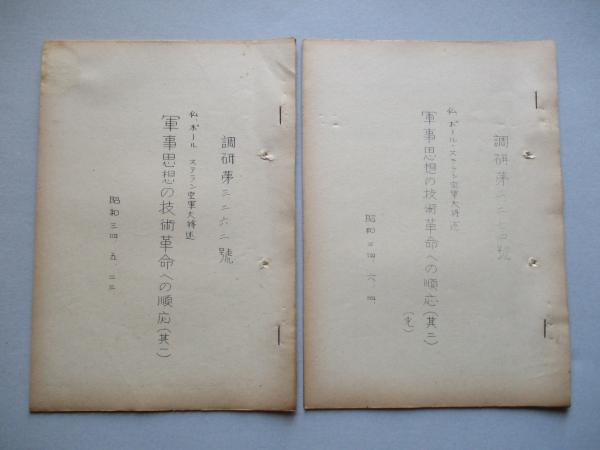 調研第三二六二號
仏、ポール ステラン空軍大将述
軍事思想の技術革命への順応(其一)
昭和三四、五、二三
調研第
仏、ポール・ステラン空軍大将述
軍事思想の技術革命への順応(其二)
(完)
昭和三四、六、四